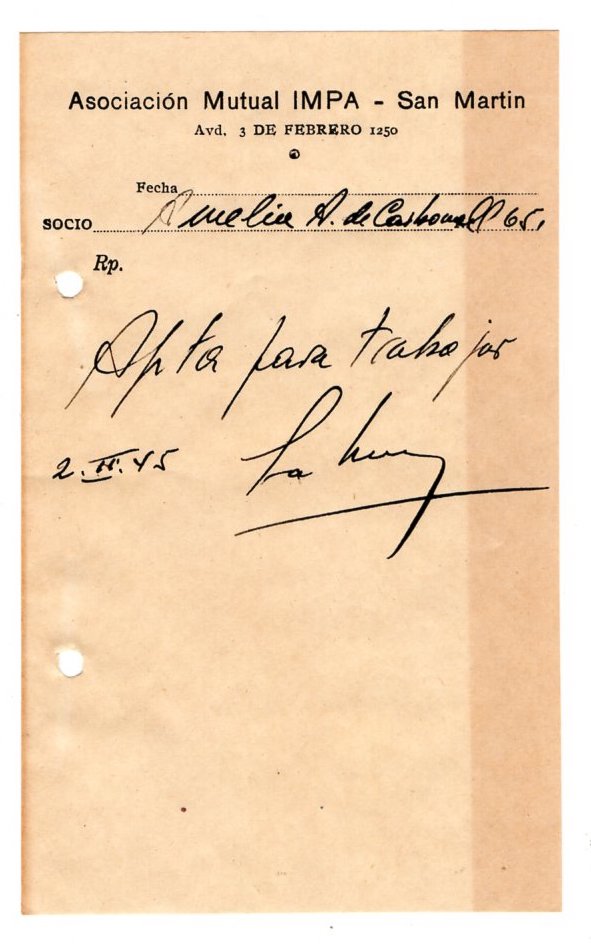 Asociación Mutual IMPA - San Martin
Avd. 3 DE FEBRERO 1250
Fecha
SOCIO Amelia A. de Carbonell 65.
Rp.
Apta para trabajar
2.II.45